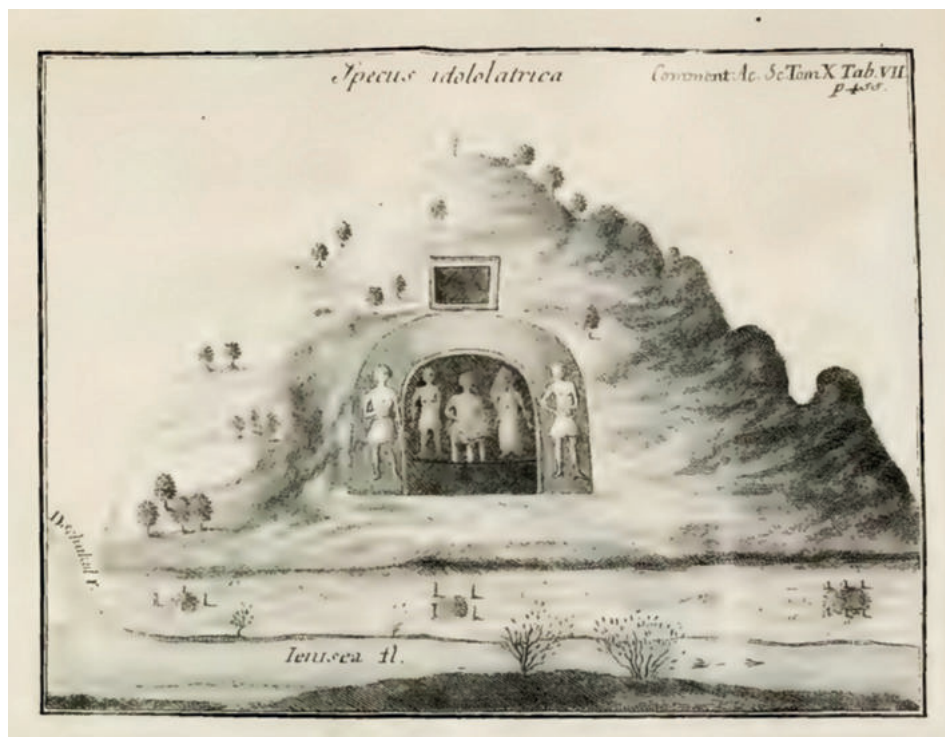 Specus idololatrica
Comment. Ac. Sc. Tom X Tab. VII.
p 455.
Dschakul r.
Ienisea fl.